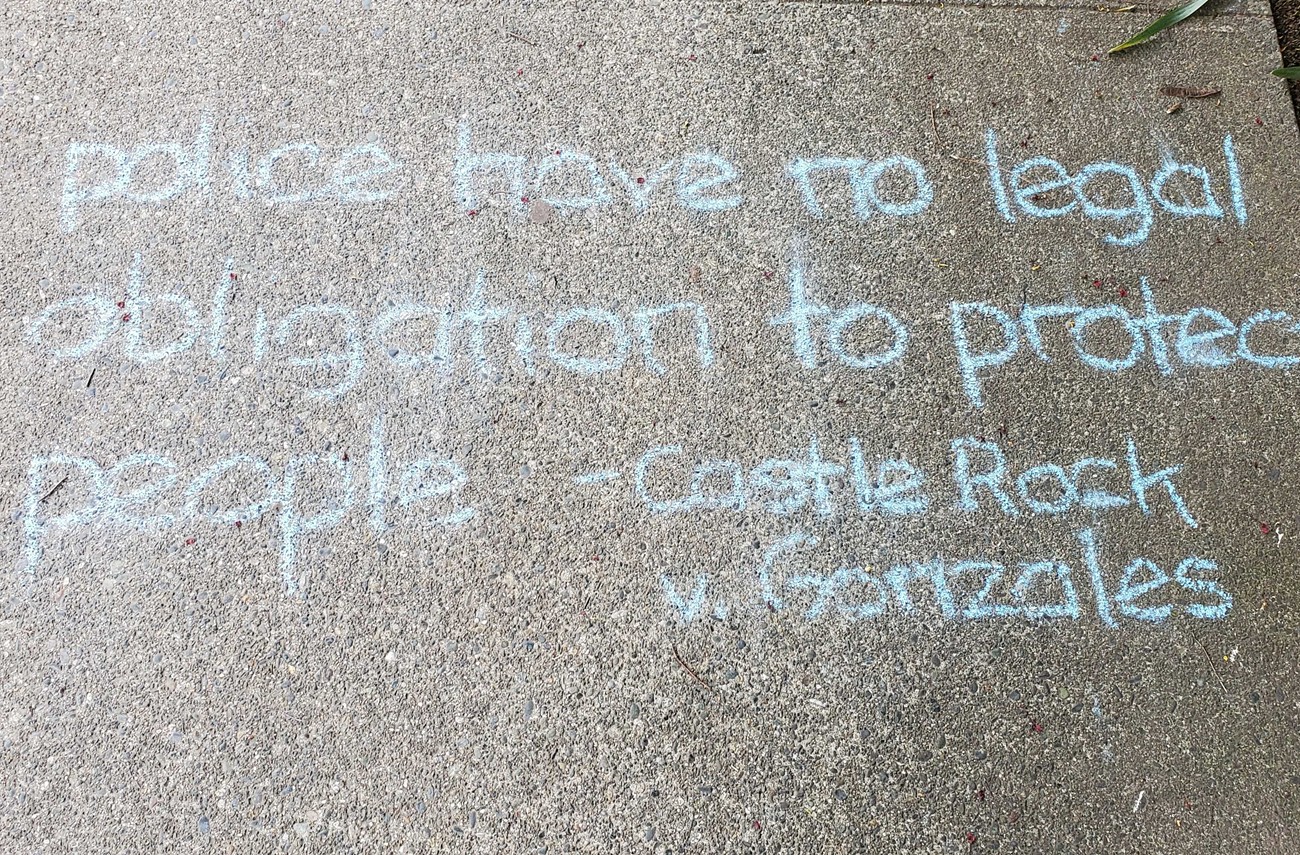 police have no legal
obligation to protec
people - Castle Rock
v. Gonzales